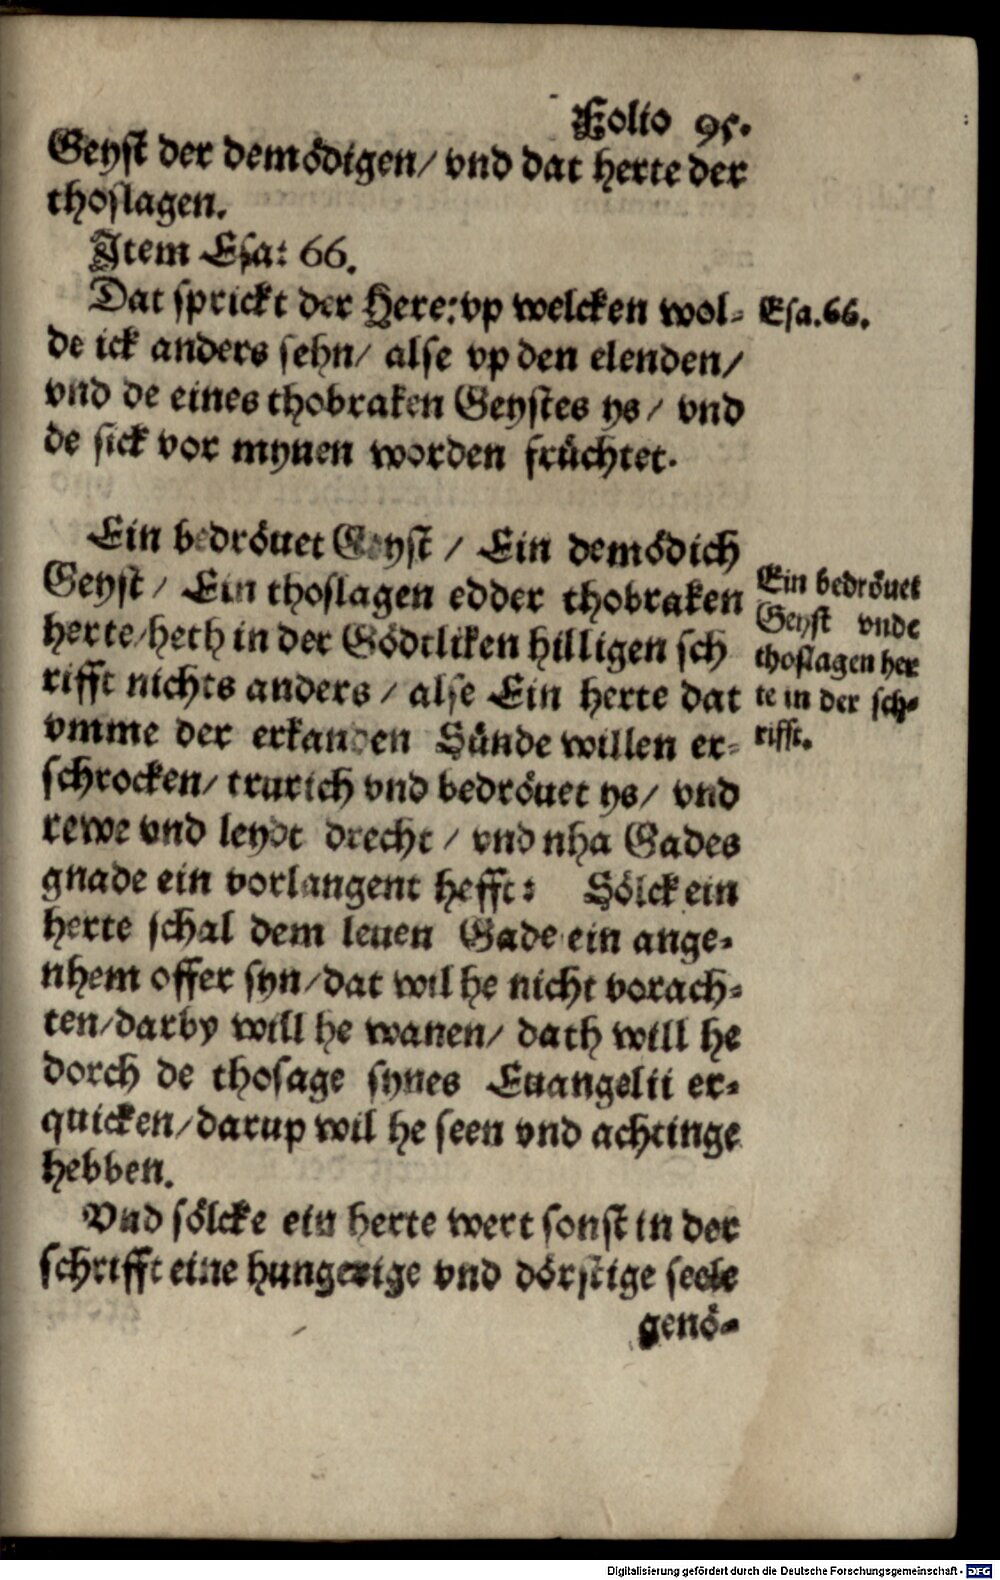 Folio 95.
Geyst der demödigen/ vnd dat herte der
thoslagen.
Item Esa: 66.
Dat sprickt der Here: vp welcken wol-
de ick anders sehn/ alse vp den elenden/
vnd de eines thobraken Geystes ys/ vnd
de sick vor mynen worden früchtet.
Esa.66.
Ein bedröuet Geyst / Ein demödich
Geyst/ Ein thoslagen edder thobraken
herte/heth in der Gödtliken hilligen sch
rifft nichts anders/ alse Ein herte dat
vmme der erkanden Sünde willen er-
schrocken/ trurich vnd bedröuet ys/ vnd
rewe vnd leydt drecht/ vnd nha Gades
gnade ein vorlangent hefft: Sölck ein
herte schal dem leuen Gade ein ange-
nhem offer syn/dat wil he nicht vorach-
ten/darby will he wanen/ dath will he
dorch de thosage synes Euangelii er-
quicken/darup wil he seen vnd achtinge
hebben.
Ein bedröuet
Geyst vnde
thoslagen her
te in der sch-
rifft.
Vnd sölcke ein herte wert sonst in der
schrifft eine hungerige vnd dörstige seele
genö-
Digitalisierung gefördert durch die Deutsche Forschungsgemeinschaft - DFG